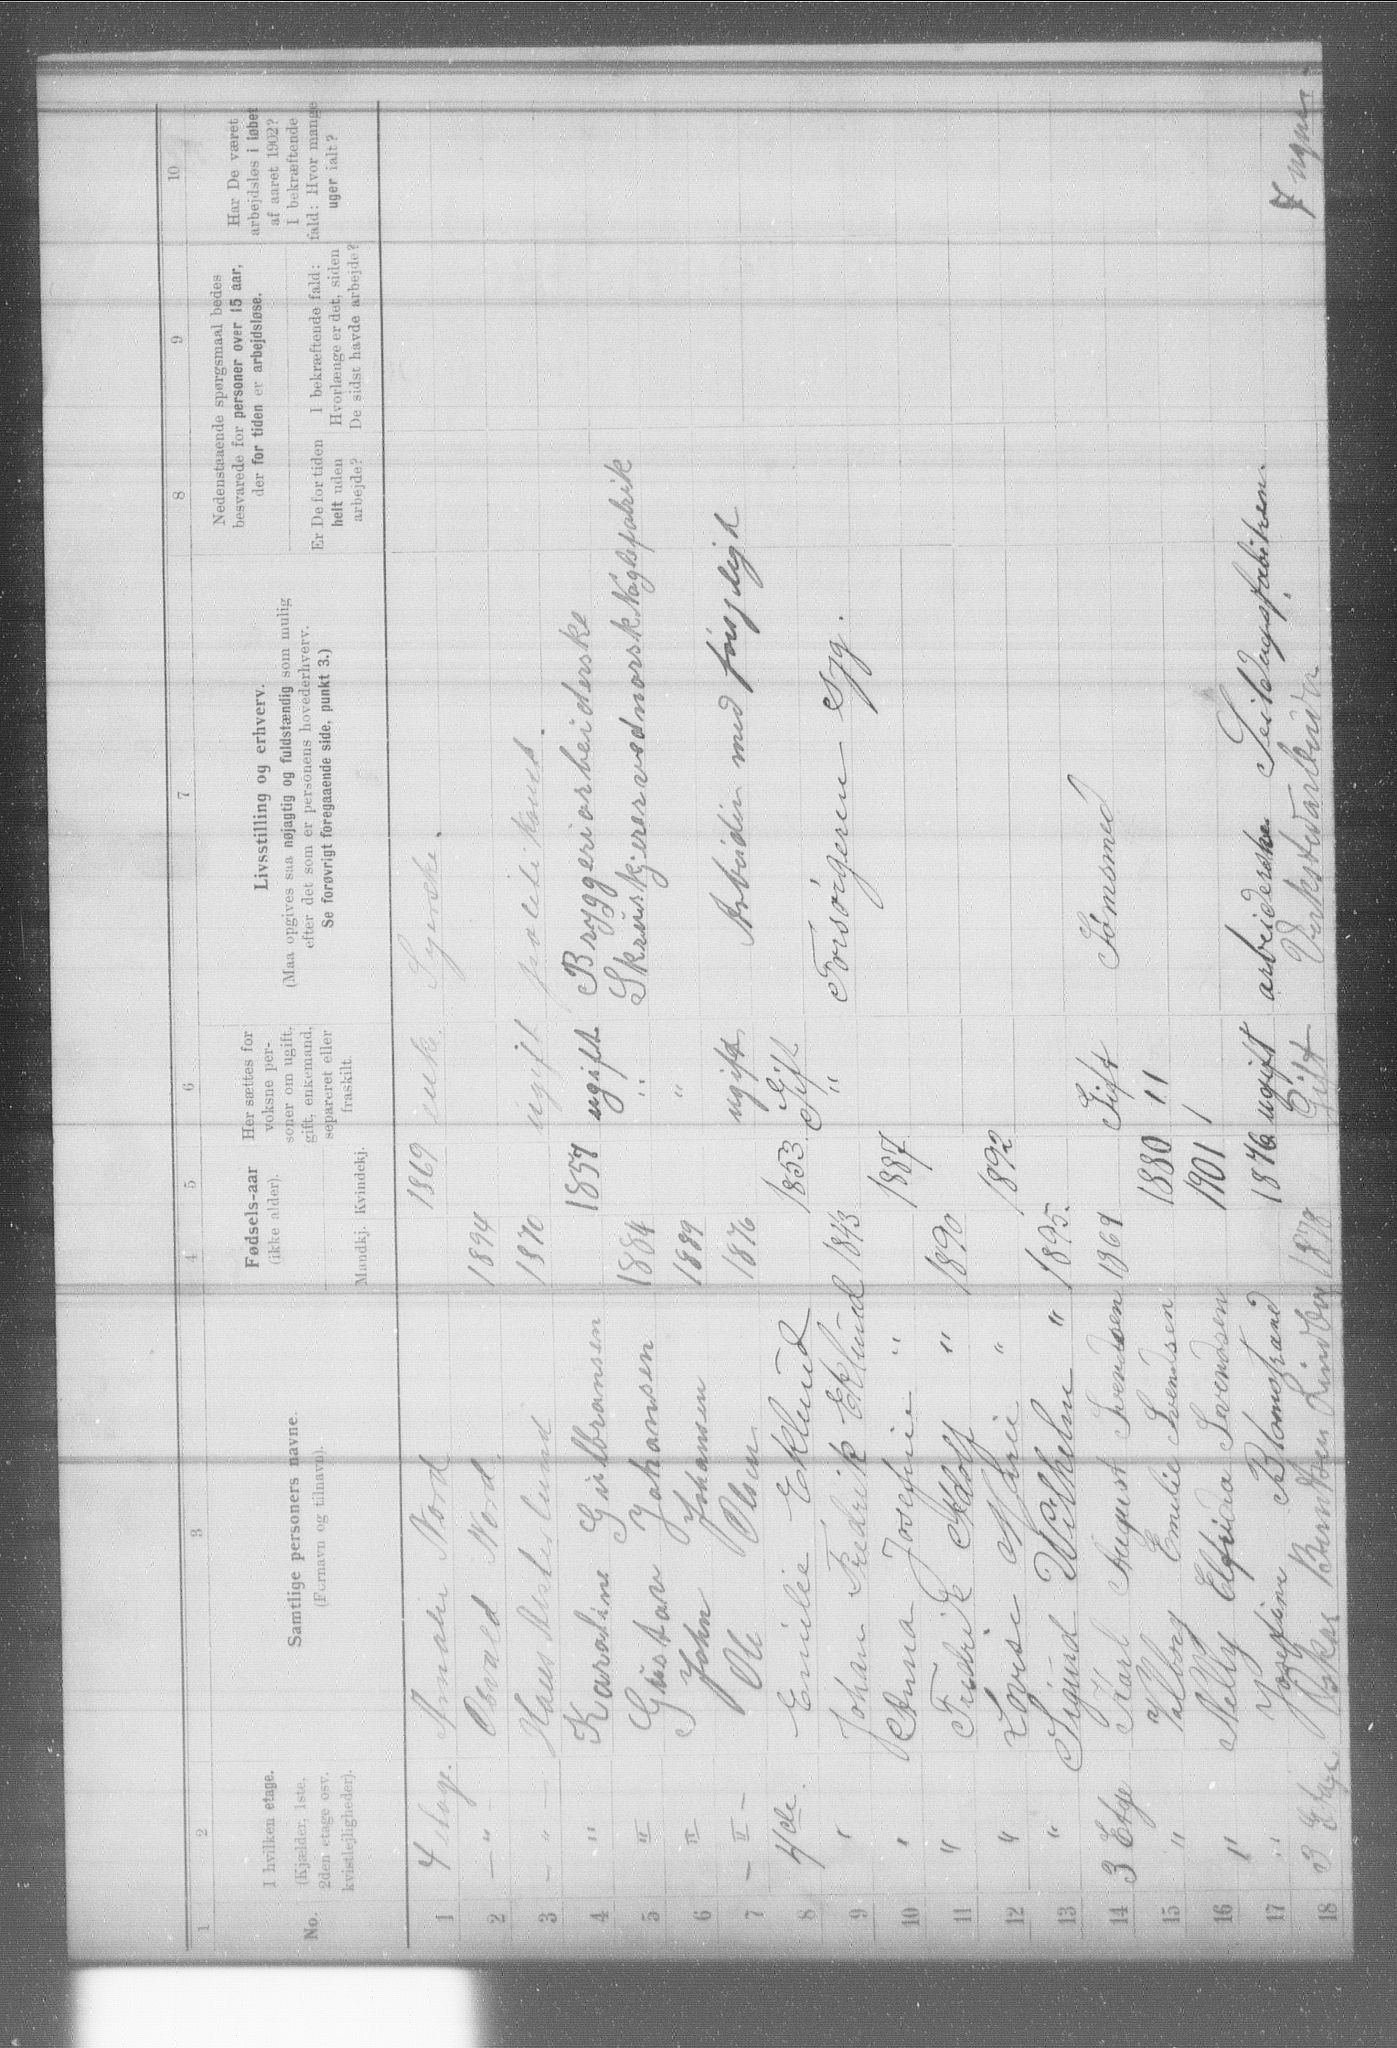 1 2 3 4 5 6 7 8 9 10
No.
I hvilken etage.
(Kjælder, 1ste,
2den etage osv.
kvistlejligheder).
Samtlige personers navne.
(Fornavn og tilnavn).
Fødsels-aar
(ikke alder).
Mandkj. Kvindekj.
Her sættes for
voksne per-
soner om ugift,
gift, enkemand,
separeret eller
fraskilt.
Livsstilling og erhverv.
(Maa opgives saa nøjagtig og fuldstændig som mulig
efter det som er personens hovederhverv.
Se forøvrigt foregaaende side, punkt 3.)
Nedenstaaende spørgsmaal bedes
besvarede for personer over 15 aar,
der for tiden er arbejdsløse.
Er De for tiden
helt uden
arbejde?
I bekræftende fald:
Hvorlænge er det, siden
De sidst havde arbejde?
Har De været
arbejdsløs i løbet
af aaret 1902?
I bekræftende
fald: Hvor mange
uger ialt?
1 4 etage. Amalie Nord 1869 enke. Syerske.
2 — " — Osvald Nord 1894
3 — " — Hans 1870 ugift
4 " Karoline Gulbransen 1857 ugift Bryggeriarbeiderske
5 " Gustav Johansen 1884 " Skruskjerer ved norsk Naglefabrik
6 " John Johansen 1889 "
7 — " — Ole Olsen 1876 ugift Arbeider med forsjeligt
8 4de. Emilie Eklund 1853 Gift
9 " Johan Fredrik Eklund 1843 " Forsørgeren Syg.
10 " Anna Josefine " 1887
11 " Fredrik Adolf " 1890
12 " Lovise Marie " 1892
13 " Sigurd Wilhelm " 1895.
14 3 Etge Karl August Svendsen 1869 Gift Sömsmed
15 " Valborg Emilie Svendsen 1880 "
16 " Nelly Elfrida Svendsen 1901 /
17 " Josefine Blomstrand 1876 ugift arbeiderske Seildugsfabriken.
18 3 Etge Oskar Lindberg 1878 Gift 7 uger.